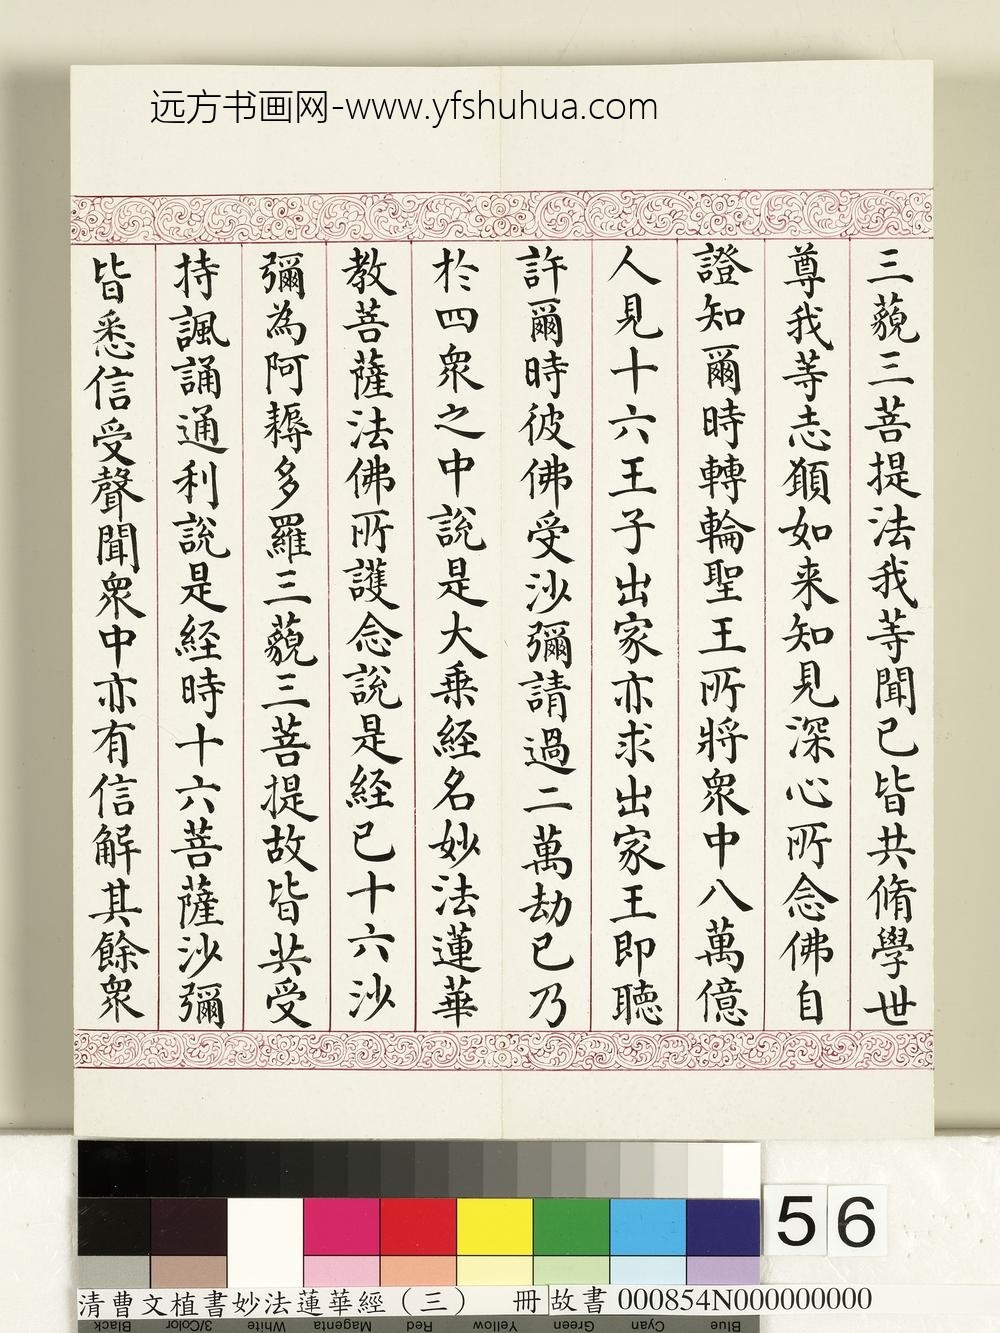 远方书画网-www.yfshuhua.com
三藐三菩提法我等聞已皆共脩學世
尊我等志願如来知見深心所念佛自
證知爾時轉輪聖王所將衆中八萬億
人見十六王子出家亦求出家王即聽
許爾時彼佛受沙彌請過二萬劫已乃
於四衆之中說是大乗經名妙法蓮華
教菩薩法佛所護念說是經已十六沙
彌為阿耨多羅三藐三菩提故皆共受
持諷誦通利說是經時十六菩薩沙彌
皆悉信受聲聞衆中亦有信解其餘衆
56
清曹文植書妙法蓮華經（三） 冊 故書 000854N000000000
Black 3/Color White Magenta Red Yellow Green Cyan Blue